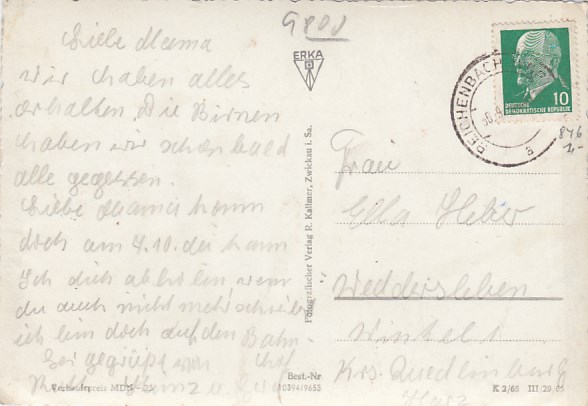 Liebe Mama
wir haben alles
erhalten. Die Birnen
haben wir schon bald
alle gegessen.
Liebe Mama komm
doch am 7.10. dei kann
Ich dich abholen wenn
du auch nicht mehr schreibst
ich bin doch auf den Bahn-
Sei gegrüßt von
Heinz u.
Verbraucherpreis MDN
ERKA
Fotografischer Verlag R. Kallmer, Zwickau i. Sa.
Best.-Nr.
1039419653
REICHENBACH
DEUTSCHE
DEMOKRATISCHE REPUBLIK
10
846
1,-
Frau
Ella
Weddersleben
Winkel 1
Krs. Quedlinburg
Harz
K 2/65 III/29/65